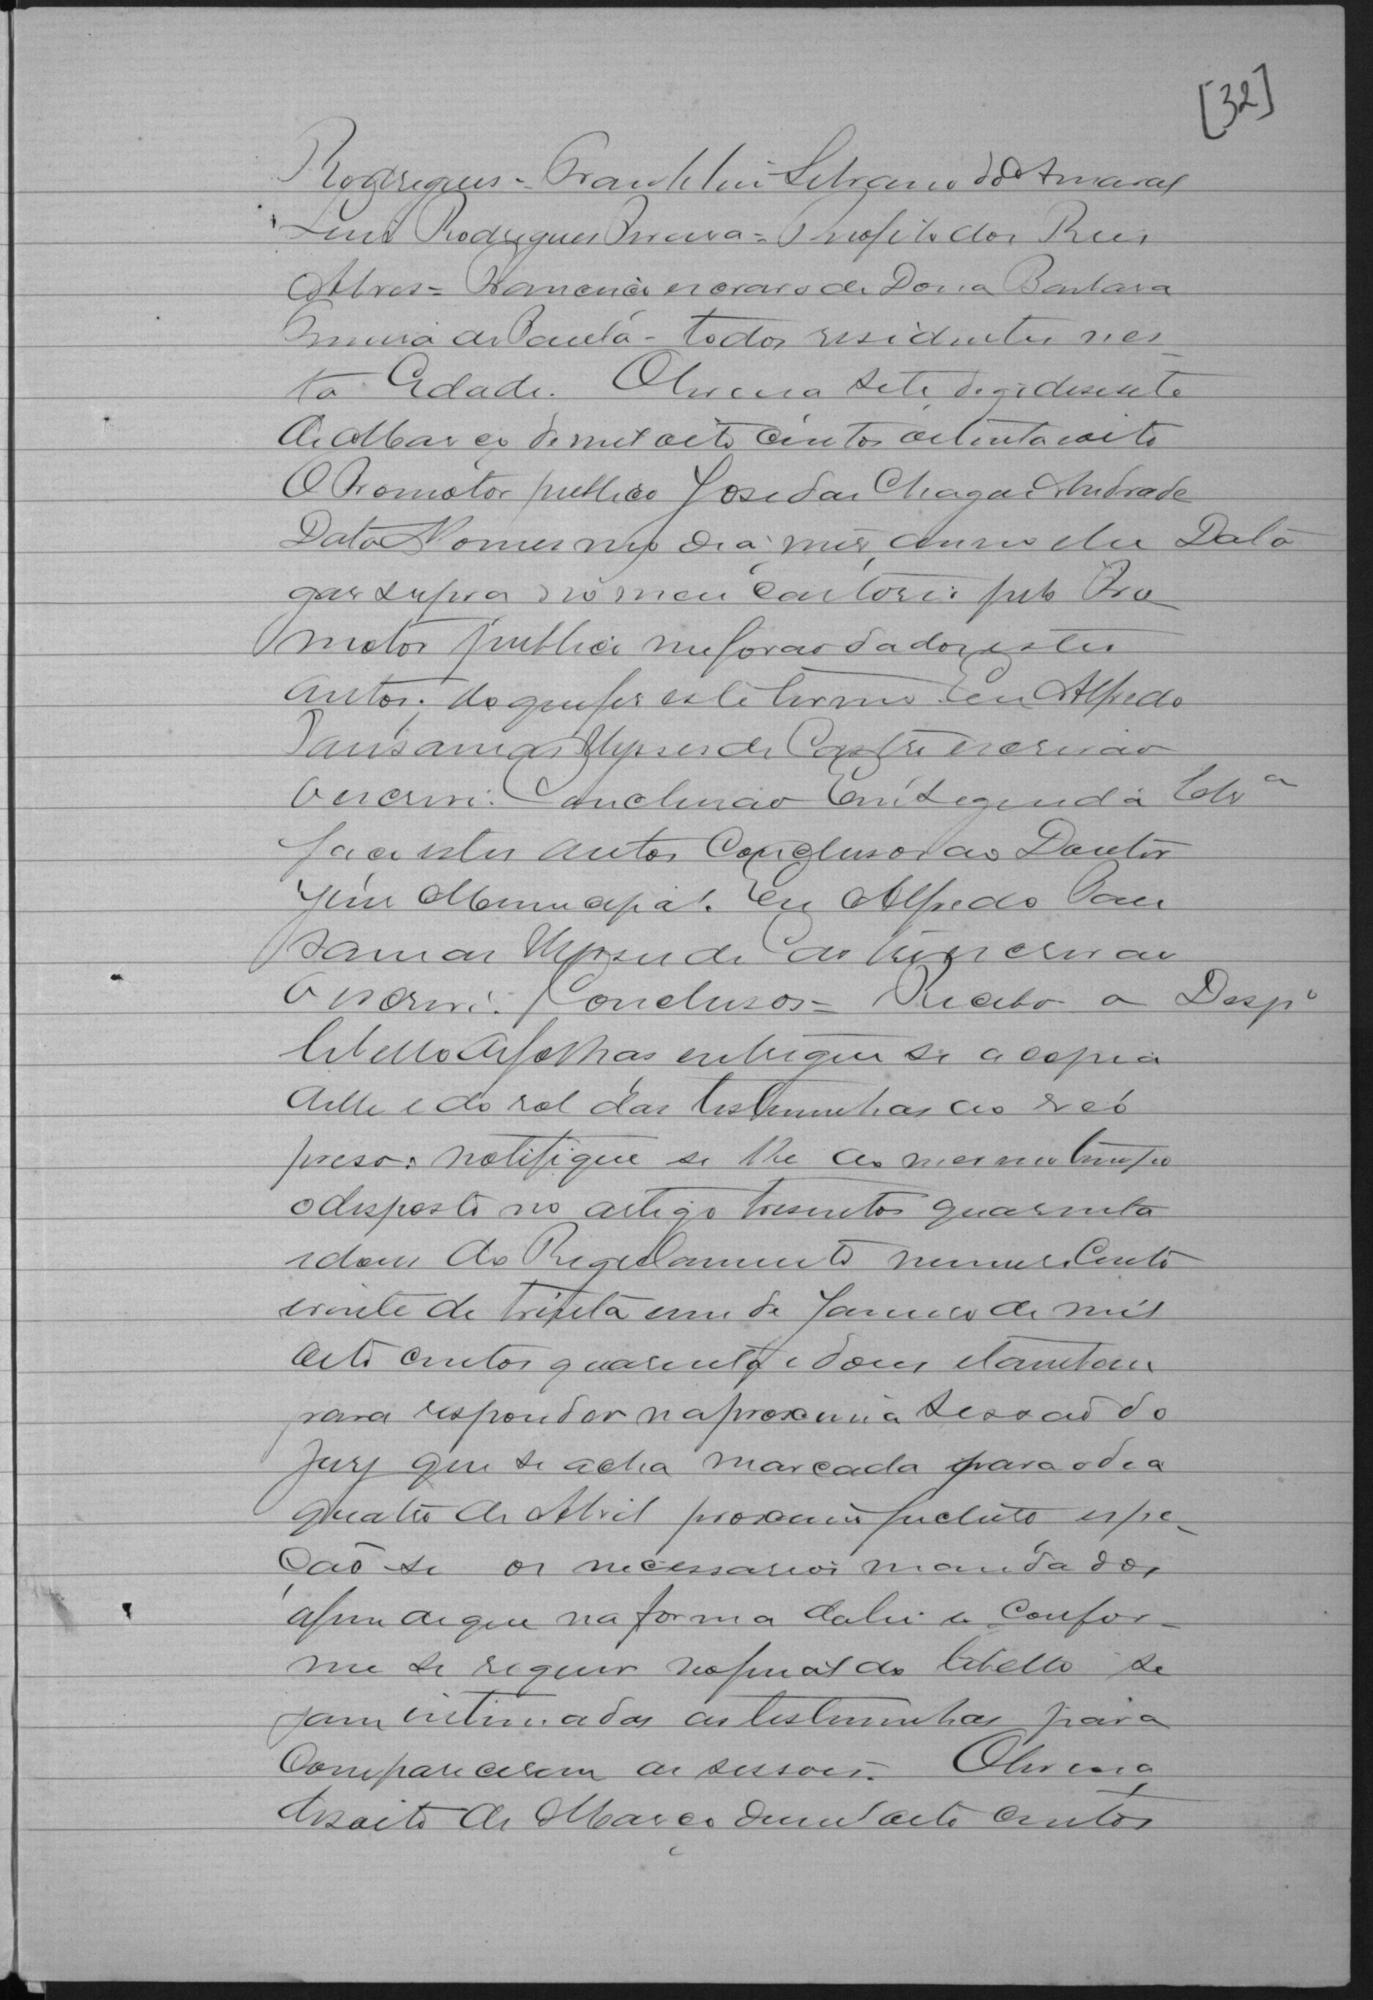 [32]
Rodrigues = Franklin Silverio do Amaral
Luis Rodrigues Pereira = Theofilo dos Reis
Alves = Francisco escravo de Dona Barbara
de Paula - todos residentes nes-
ta Cidade. Oliveira sete, digo desesete
de Março de mil oito centos oitenta e oito
O Promotor publico Jose das Chagas Andrade
Data No mesmo dia, mes, anno e lu Data
gar supra no meu Cartorio pelo Pro
motor publico me forão dados estes
autos; do que fiz este termo. Eu Alfredo
Pausanias Ulysses de Castro escrivão
o escrevi. Conclusão Em seguida Clsª
faço estes autos Conclusos ao Doutor
Juis Municipal. Eu Alfredo Pau
sanias Ulysses de Castro escrivão
o escrevi. Conclusos = Recebo o Despº
libello de folhas entregue se a copia
delle e do rol das testemunhas ao reo
preso: notifique se lhe ao mesmo tempo
o disposto no artigo tresentos quarenta
e dous do Regulamento numero Cento
e vinte de trinta e um de Janeiro de mil
oito centos quarenta e dous e tambem
para responder na proxima Sessão do
Jury que se acha marcada para o dia
quatro de Abril proximo futuro expe-
ção-se os necessarios mandados
afim de que na forma da lei e Confor-
me se requer no final do libello se
jam intimadas as testemunhas para
Comparecerem as sessões. Oliveira,
desoito de Março de mil oito centos